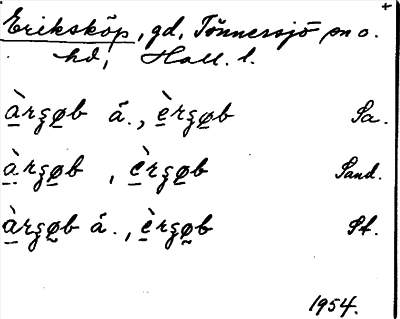 Eriksköp, gd, Tönnersjö sn o.
hd, Hall. l.
àrsø̱b á., èrsø̱b Sa.
àrsø̱b , èrsø̱b Sand.
àrsø̱b á., èrsø̱b St.
1954.